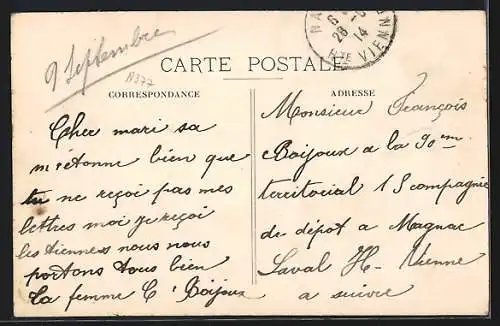 9 Septembre
CARTE POSTALE
CORRESPONDANCE
Cher mari sa
m'étonne bien que
tu ne reçoi pas mes
lettres moi je reçoi
les tiennes nous nous
portons tous bien
ta femme C. Boijoux
ADRESSE
Monsieur François
Boijoux a la 90em
territoirial 15 compagnie
de dépôt a Magnac
Laval Hte Vienne
a suivre
28 - 14
HTE VIENNE